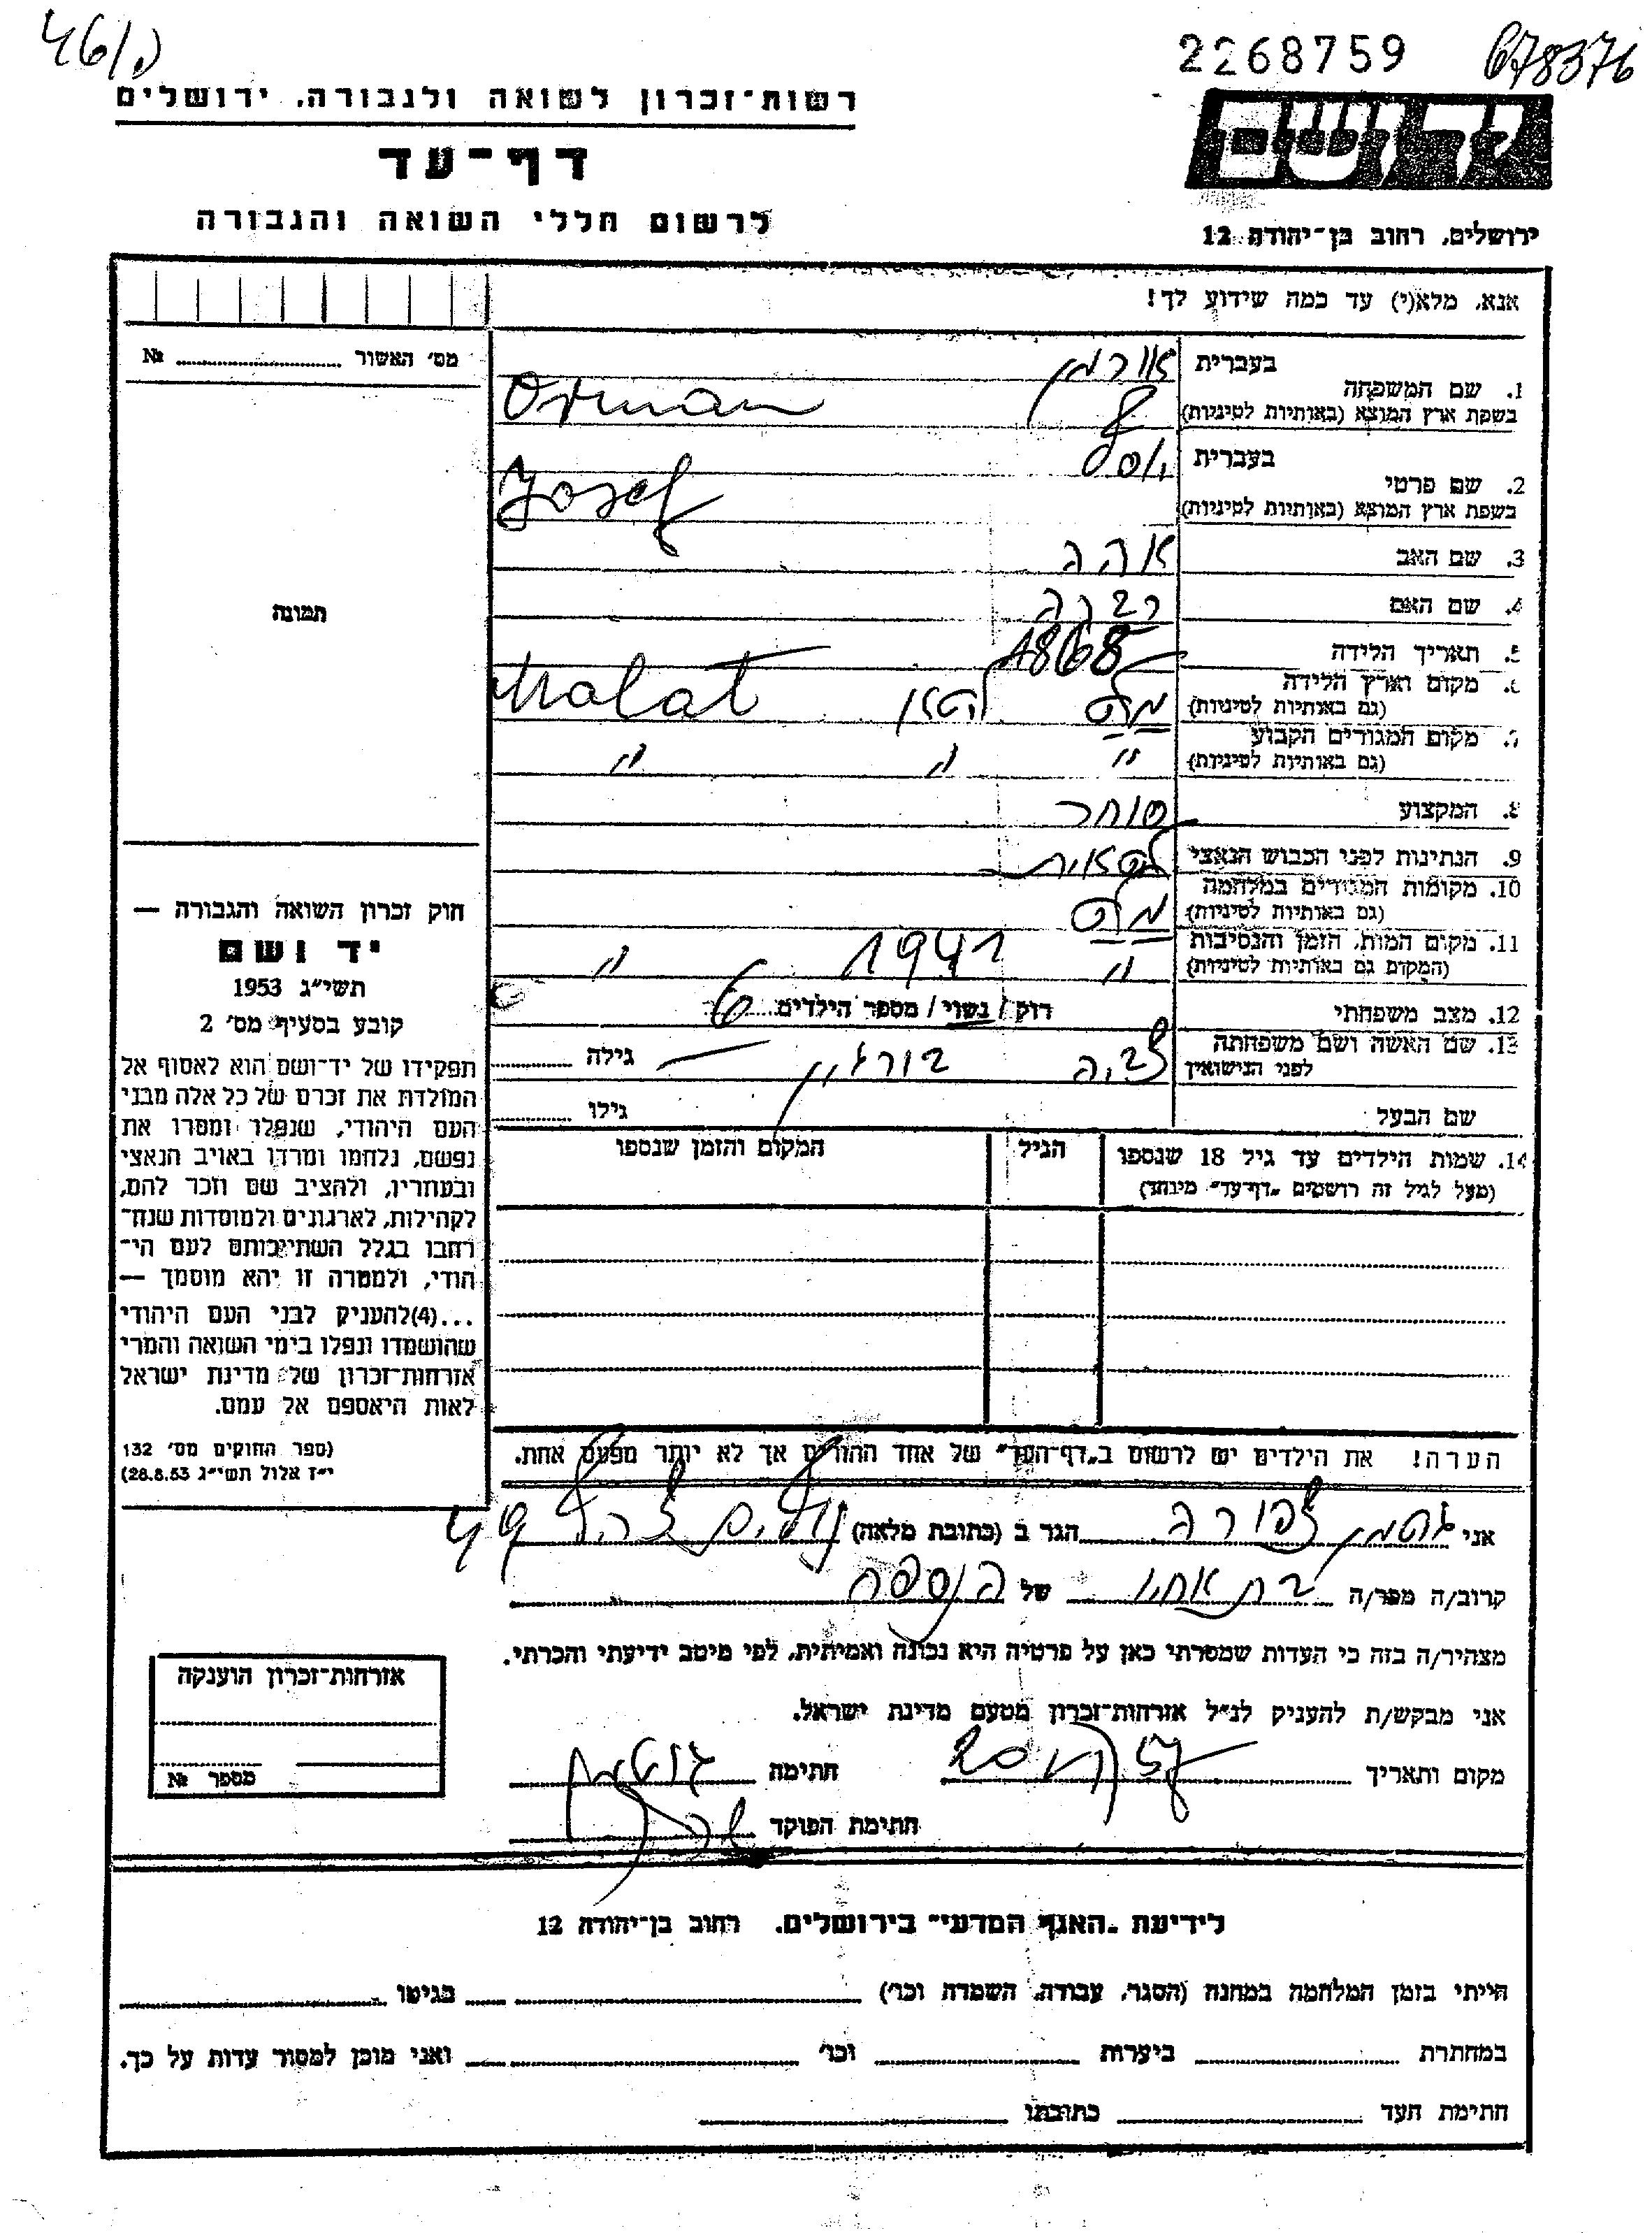 2268759
678376
רשות־זכרון לשואה ולגבורה, ירושלים
דף־עד
לרשום חללי השואה והגבורה
יד ושם
ירושלים, רחוב בן־יהודה 12
אנא, מלא(י) עד כמה שידוע לך!
מס׳ האשור № 
1. שם המשפחה
בעברית אורמן
בשפת ארץ המוצא (באותיות לטיניות) Orman
2. שם פרטי
בעברית יוסף
בשפת ארץ המוצא (באותיות לטיניות) Josef
3. שם האב
4. שם האם
5. תאריך הלידה 1868
6. מקום וארץ הלידה
(גם באותיות לטיניות) Malat
7. מקום המגורים הקבוע
(גם באותיות לטיניות) " " "
8. המקצוע סוחר
9. הנתינות לפני הכבוש הנאצי
10. מקומות המגורים במלחמה
(גם באותיות לטיניות) מלט
11. מקום המות, הזמן והנסיבות
(המקום גם באותיות לטיניות) " 1941 "
12. מצב משפחתי רוק / נשוי / מספר הילדים 6
13. שם האשה ושם משפחתה
לפני הנישואין גילה
שם הבעל גילו
14. שמות הילדים עד גיל 18 שנספו
(מעל לגיל זה רושמים „דף־עד״ מיוחד)
הגיל
המקום והזמן שנספו
הערה! את הילדים יש לרשום ב„דף־העד״ של אחד ההורים אך לא יותר מפעם אחת.
תמונה
חוק זכרון השואה והגבורה —
יד ושם
תשי״ג 1953
קובע בסעיף מס׳ 2
תפקידו של יד־ושם הוא לאסוף אל
המולדת את זכרם של כל אלה מבני
העם היהודי, שנפלו ומסרו את
נפשם, נלחמו ומרדו באויב הנאצי
ובעוזריו, ולהציב שם וזכר להם,
לקהילות, לארגונים ולמוסדות שנח־
רחבו בגלל השתייכותם לעם הי־
הודי, ולמטרה זו יהא מוסמך —
...(4)להעניק לבני העם היהודי
שהושמדו ונפלו בימי השואה והמרי
אזרחות־זכרון של מדינת ישראל
לאות היאספם אל עמם.
(ספר החוקים מס׳ 132
י״ז אלול תשי״ג 28.8.53)
אני צפורה הגר ב (כתובת מלאה)
קרוב/ה מפר/ה בת אחיו של הנספה
מצהיר/ה בזה כי העדות שמסרתי כאן על פרטיה היא נכונה ואמיתית, לפי מיטב ידיעתי והכרתי.
אני מבקש/ת להעניק לנ״ל אזרחות־זכרון מטעם מדינת ישראל.
מקום ותאריך חתימה
חתימת הפוקד
אזרחות־זכרון הוענקה
מספר №
לידיעת „האגף המדעי״ בירושלים, רחוב בן־יהודה 12
הייתי בזמן המלחמה במחנה (הסגר, עבודה, השמדה וכו׳) בגיטו
במחתרת ביערות וכו׳ ואני מוכן למסור עדות על כך.
חתימת העד כתובתו